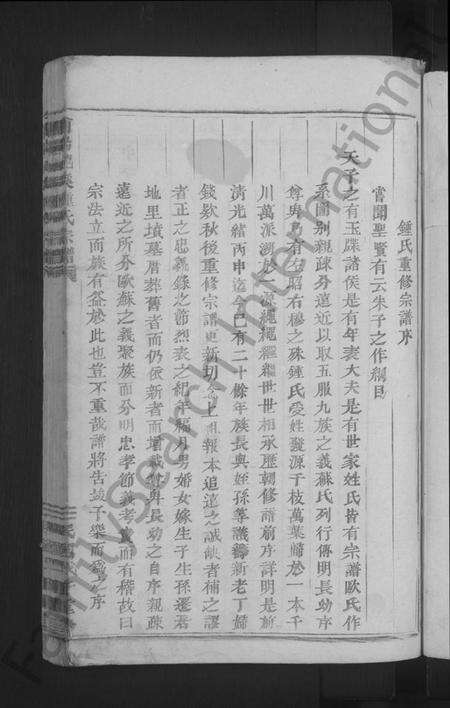 鍾氏重修宗譜序
嘗聞聖賢有云朱子之作綱目
天子之有玉牒諸侯是有年表大夫是有世家姓氏皆有宗譜歐氏作
系圖別親疎分遠近以取五服九族之義蘇氏列行傳明長幼序
尊卑乃有左昭右穆之殊鍾氏受姓發源千枝萬葉歸於一本千
川萬派溯於源繩繩繼繼世世相承歷朝修譜前序詳明是前
清光緒丙申迄今已有二十餘年族長與姪孫等議舊新老丁歸
錢欵秋後重修宗譜更新切念上祖報本追遠之誠缺者補之謬
者正之忠義錄之節烈表之紀年稱月男婚女嫁生子生孫遷居
地里墳墓厝葬舊者而仍依新者而增載尊卑長幼之自序親疎
遠近之所分歐蘇之義聚族而分明忠孝節義考實而有稽故曰
宗法立而族有益於此也豈不重哉譜將告竣予樂而為之序
FamilySearch International